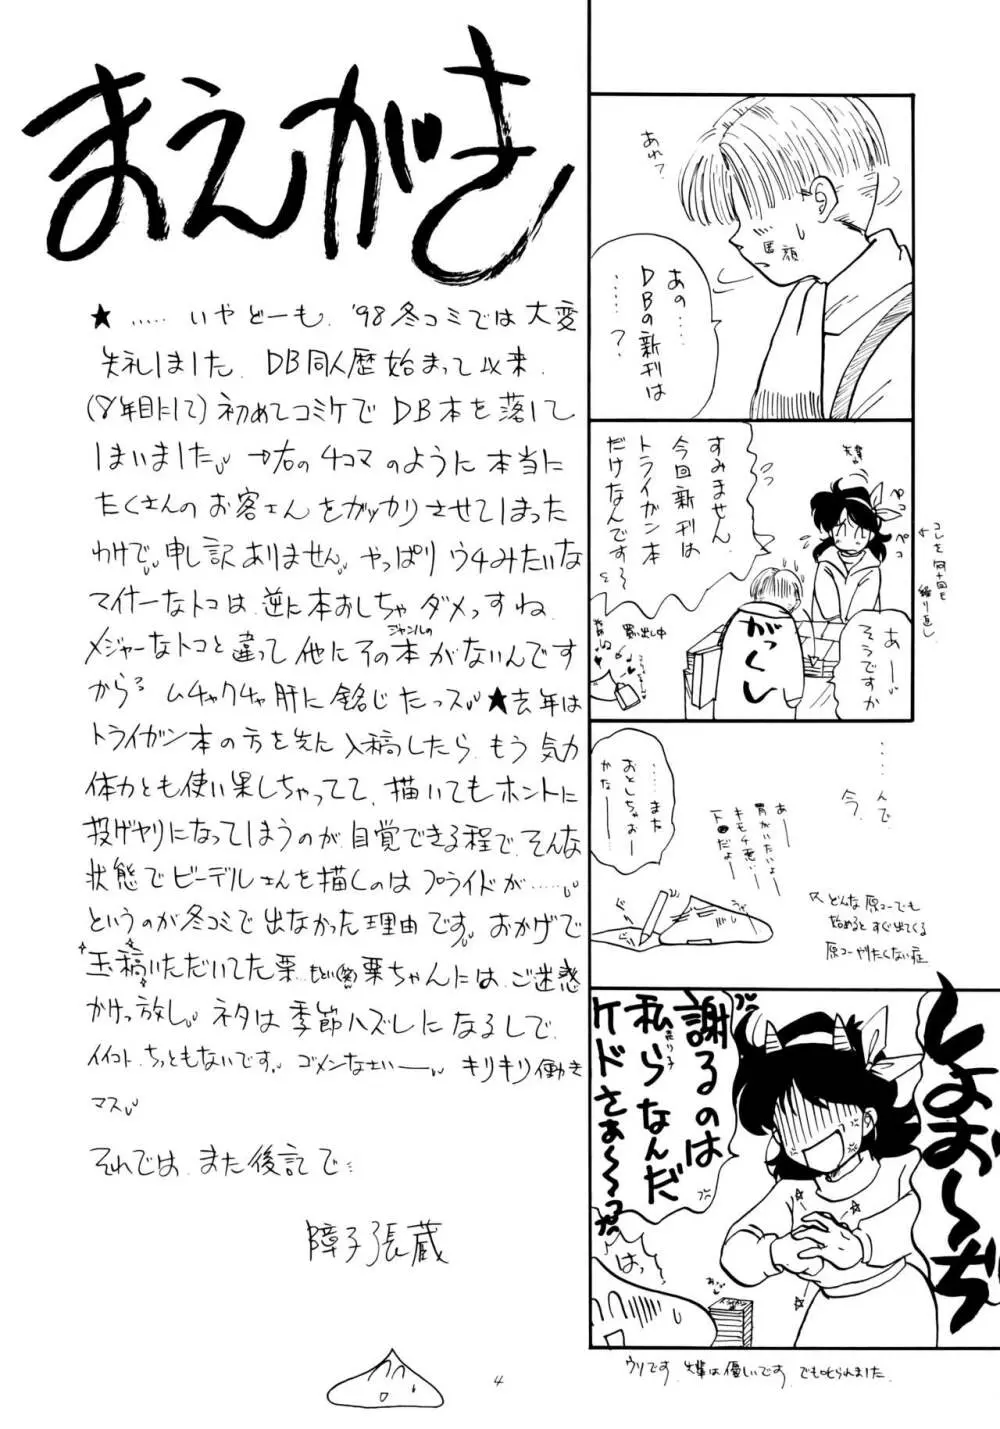 まえがき
★ ‥‥‥ いやどーも、'98冬コミでは大変
失礼しました。DB同人歴始まって以来、
(8年目にして)初めてコミケでDB本を落して
しまいました。→右の4コマのように本当に
たくさんのお客さんをガッカリさせてしまった
わけで、申し訳ありません。やっぱりウチみたいな
マイナーなトコは、逆に本おしちゃダメっすね
メジャーなトコと違って他にそのジャンルの本がないんです
から、ムチャクチャ肝に銘じたっス。★去年は
トライガン本の方を先に入稿したら、もう気力
体力とも使い果しちゃってて、描いてもホントに
投げヤリになってしまうのが自覚できる程で、そんな
状態でビーデルさんを描くのはプライドが‥‥‥
というのが冬コミで出なかった理由です。おかげで
玉稿いただいてた栗 もとい(笑) 粟ちゃんには、ご迷惑
かけっ放し。ネタは季節ハズレになるしで、
イイコト、ちっともないです。ゴメンなさいー。キリキリ働き
マス。
それでは、また後記で‥
障子張蔵
4
あれ?
真顔
あの‥‥
DBの新刊は
‥‥‥?
すみません、
今回新刊は
トライガン本
だけなんです〜
先輩
ペコ
ペコ
コレを何十回も
繰り返し
がっくし
あー
そうですか
買い出し中
‥‥んで
今、
‥‥また
おとしちゃお
かなー
あー
胃がいたいよー
キモチ悪い‥
下□だよー
どんな原コーでも
始めるとすぐ出てくる
原コーやりたくない症
しょお〜ぢ
謝るのは
私ら売り子なんだ
ケドさぁ〜〜っ?
はっ
ウリです。先輩は優しいです。でも叱られました。